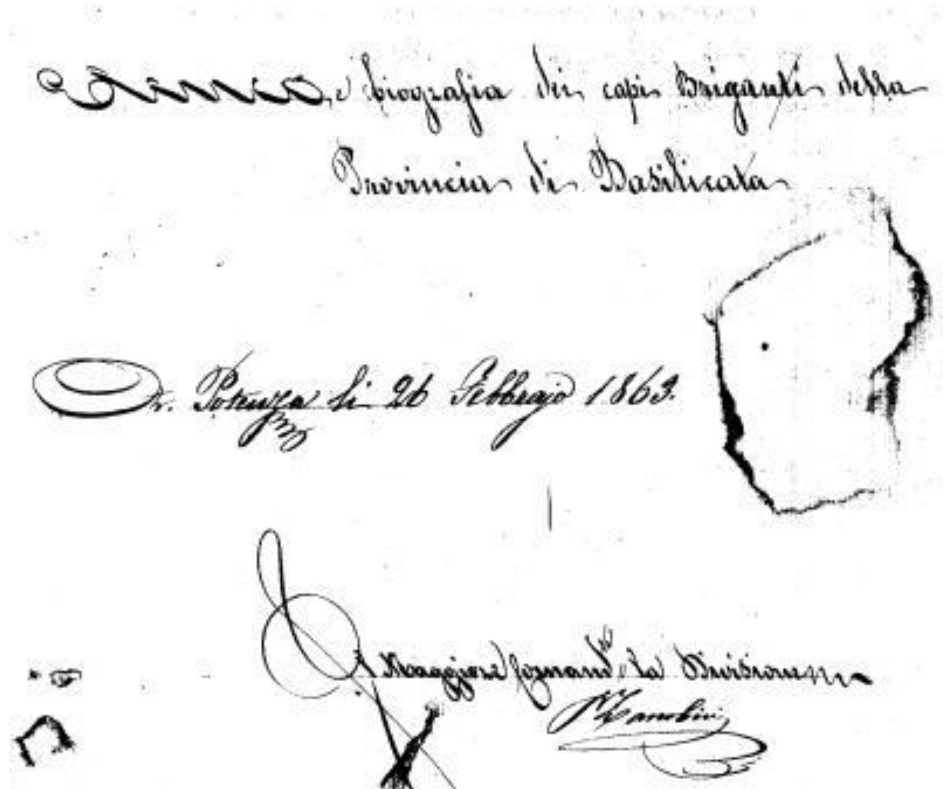 Elenco e biografia dei capi Briganti della
Provincia di Basilicata
Potenza li 26 Febbrajo 1863.
Il Maggiore Comand.e la Divisione